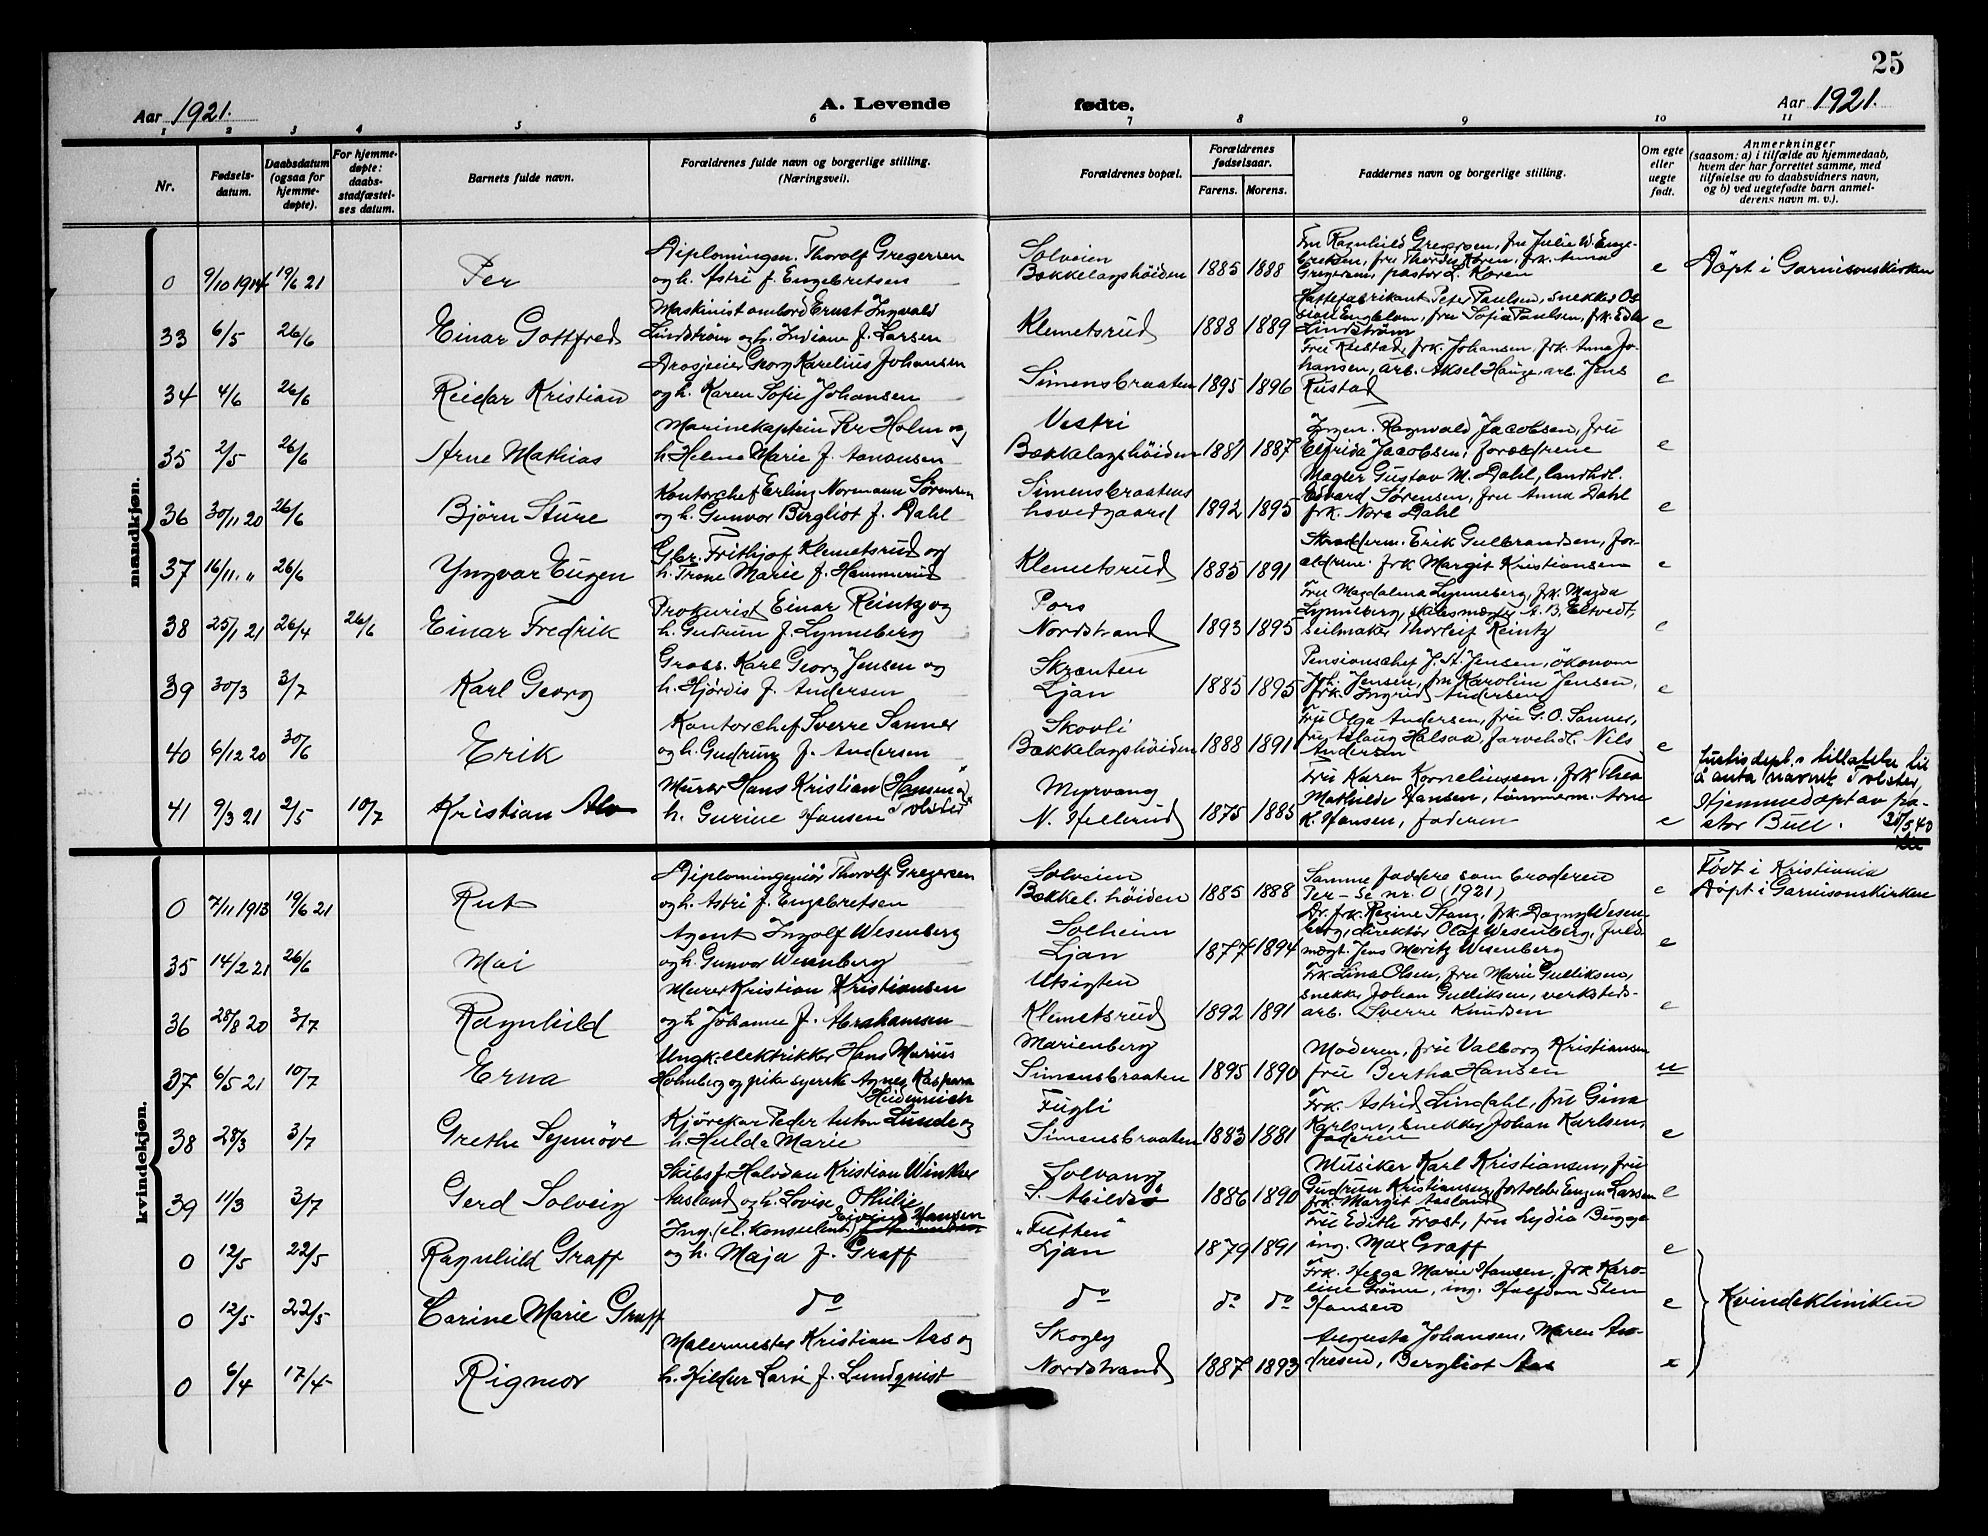 25
Aar 1921.
A. Levende
fødte.
Aar 1921.
1 2 3 4 5 6 7 8 9 10 11
Nr.
Fødsels-
datum.
Daabsdatum
(ogsaa for
hjemme-
døpte).
For hjemme-
døpte:
daabs-
stadfæstel-
ses datum.
Barnets fulde navn.
Forældrenes fulde navn og borgerlige stilling.
(Næringsvei).
Forældrenes bopæl.
Forældrenes
fødselsaar.
Farens. Morens.
Faddernes navn og borgerlige stilling.
Om egte
eller
uegte
født.
Anmerkninger
(saasom: a) i tilfælde av hjemmedaab,
hvem der har forrettet samme, med
tilføielse av to daabsvidners navn,
og b) ved uegtefødte barn anmel-
derens navn m. v.).
mandkjøn.
0 9/10 1914 19/6 21 Per
Diplomingen. Thorolf Gregersen
og h. Astri f. Engebretsen
Solveien
Bækkelagshöiden 1885 1888
Fru Ragnhild Gregersen, fru Julie W. Enge-
bretsen, fru Thordis Koren, frk. Anna
Gregersen, pastor L. Koren
e Döpt i Garnisonskirken
33 6/5 26/6 Einar Gottfred
Maskinist ombord Ernst Ingvald
Lindström og h. Indiane f. Larsen
Klemetsrud 1888 1889
Hattefabrikant Peter Paulsen, snekker Os
Engblom, fru Sofie Paulsen, frk. Edle
Lindström
e
34 4/6 26/6 Reidar Kristian
Drosjeeier Georg Karelius Johansen
og h. Karen Sofie Johansen
Simensbraaten 1895 1896
Fru Rustad, frk. Johansen, frk. Anna Jo-
hansen, arb. Aksel Hauge, arb. Jens
Rustad
e
35 2/5 26/6 Arne Mathias
Marinekaptein Per Holm og
h. Helene Marie f. Aanonsen
Vestri
Bækkelagshöiden 1881 1887
Ingen. Ragnvald Jacobsen, fru
Elfrida Jacobsen, forældrene
e
36 30/11 20 26/6 Björn Sture
Kontorchef Erling Normann Sörensen
og h. Gunvor Bergliot f. Dahl
Simensbraatens
hovedgaard 1892 1895
Mægler Gustav M. Dahl, landhdl.
Edvard Sörensen, fru Anna Dahl
frk. Nora Dahl
e
37 16/11 " 26/6 Yngvar Eugen
Gbr. Frithjof Klemetsrud og
h. Trone Marie f. Hammerud
Klemetsrud 1885 1891
Skrædderm. Erik Gulbrandsen, for-
ældrene. frk Margit Kristiansen
e
38 25/1 21 26/4 26/6 Einar Fredrik
Prokurist Einar Reintz og
h. Gudrun f. Lynneberg
Pors
Nordstrand 1893 1895
Fru Magdalena Lynneberg, frk. Magda
Lynneberg, skibsmægler A. B. Eltvedt,
seilmaker Thorleif Reintz
e
39 30/3 3/7 Karl Georg
Gross. Karl Georg Jensen og
h. Hjördis f. Andersen
Skrænten
Ljan 1885 1895
Pensionschef J. St. Jensen, ökonom
Joh. Jensen, fru Karoline Jensen,
frk. Ingrid Andersen
e
40 6/12 20 30/6 Erik
Kontorchef Sverre Sanner
og h. Gudrun f. Andersen
Skovli
Bækkelagshöiden 1888 1891
Fru Olga Andersen, fru G. O. Sanner,
fru Aslaug Halsaa, farvehdl. Nils
Andersen
e
41 9/3 21 2/5 10/7 Kristian Alv
Murer Hans Kristian Hansen og
h. Gurine Hansen Tvolster
Myrvang
N. Hellerud 1875 1885
Fru Karen Korneliussen, frk Thea
Mathilde Hansen, tömmerm. Arne
K. Hansen, faderen
e
Justisdept.s tillatelse til
å anta navnet Tvolster,
Hjemmedöpt av pa-
stor Bull. 25/5 40
kvindekjøn.
0 7/11 1913 19/6 21 Rut
Diplomingeniör Thorolf Gregersen
og h. Astri f. Engebretsen
Solveien
Bækkel. höiden 1885 1888
Samme faddere som broderen
Per – Se nr. 0 (1921)
e
Født i Kristiania
Döpt i Garnisonskirken
35 14/2 21 26/6 Mai
Agent Ingolf Wesenberg
og h. Gunvor Wesenberg
Solheim
Ljan 1877 1894
Dr. frk. Regine Stang, frk. Dagny Wesen-
berg, direktör Olaf Wesenberg, fuld-
mægt. Jens Moritz Wesenberg
e
36 28/8 20 3/7 Ragnhild
Murer Kristian Kristiansen
og h. Johanne f. Abrahamsen
Utsigten
Klemetsrud 1892 1891
Frk Lina Olsen, fru Marie Gulliksen,
snekker Johan Gulliksen, verksteds-
arb. Sverre Knudsen
e
37 6/5 21 10/7 Erna
Ungk. elektrikker Hans Marius
Holmberg og pike syersk Agnes Kaspara
Heidenreich
Marienberg
Simensbraaten 1895 1890
Moderen, fru Valborg Kristiansen
fru Bertha Hansen
u
38 28/3 3/7 Grethe Synnöve
Kjörekar Peder Anton Lunde og
h. Hulda Marie
Fugli
Simensbraaten 1883 1881
Frk. Astrid Lindahl, fru Gina
Karlsen, snekker Johan Karlsen,
faderen
e
39 11/3 3/7 Gerd Solveig
Skibsf. Halvdan Kristian Winther
Aasland og h. Lovise Othilie
Solvang
S. Abildsö 1886 1890
Musiker Karl Kristiansen, fru
Gudrun Kristiansen, forvalter Eugen Larsen
frk. Margit Aasland
e
0 12/5 22/5 Ragnhild Graff
Ing. (el. konsulent) Eivind Hansen
og h. Maja f. Graff
"Tutten"
Ljan 1879 1891
Fru Edith Frost, fru Lydia Bugge
ing. Max Graff
e
0 12/5 22/5 Carine Marie Graff
do
do
do do
Frk. Helga Marie Hansen, frk Karo-
line Grönn, ing. Halfdan Sten
Hansen
e Kvindekliniken
0 6/4 17/4 Rigmor
Malermester Kristian Aas og
h. Hildur Karin f. Lundquist
Skogly
Nordstrand 1887 1893
Augusta Johansen, Maren An-
dresen, Bergliot Aas
e